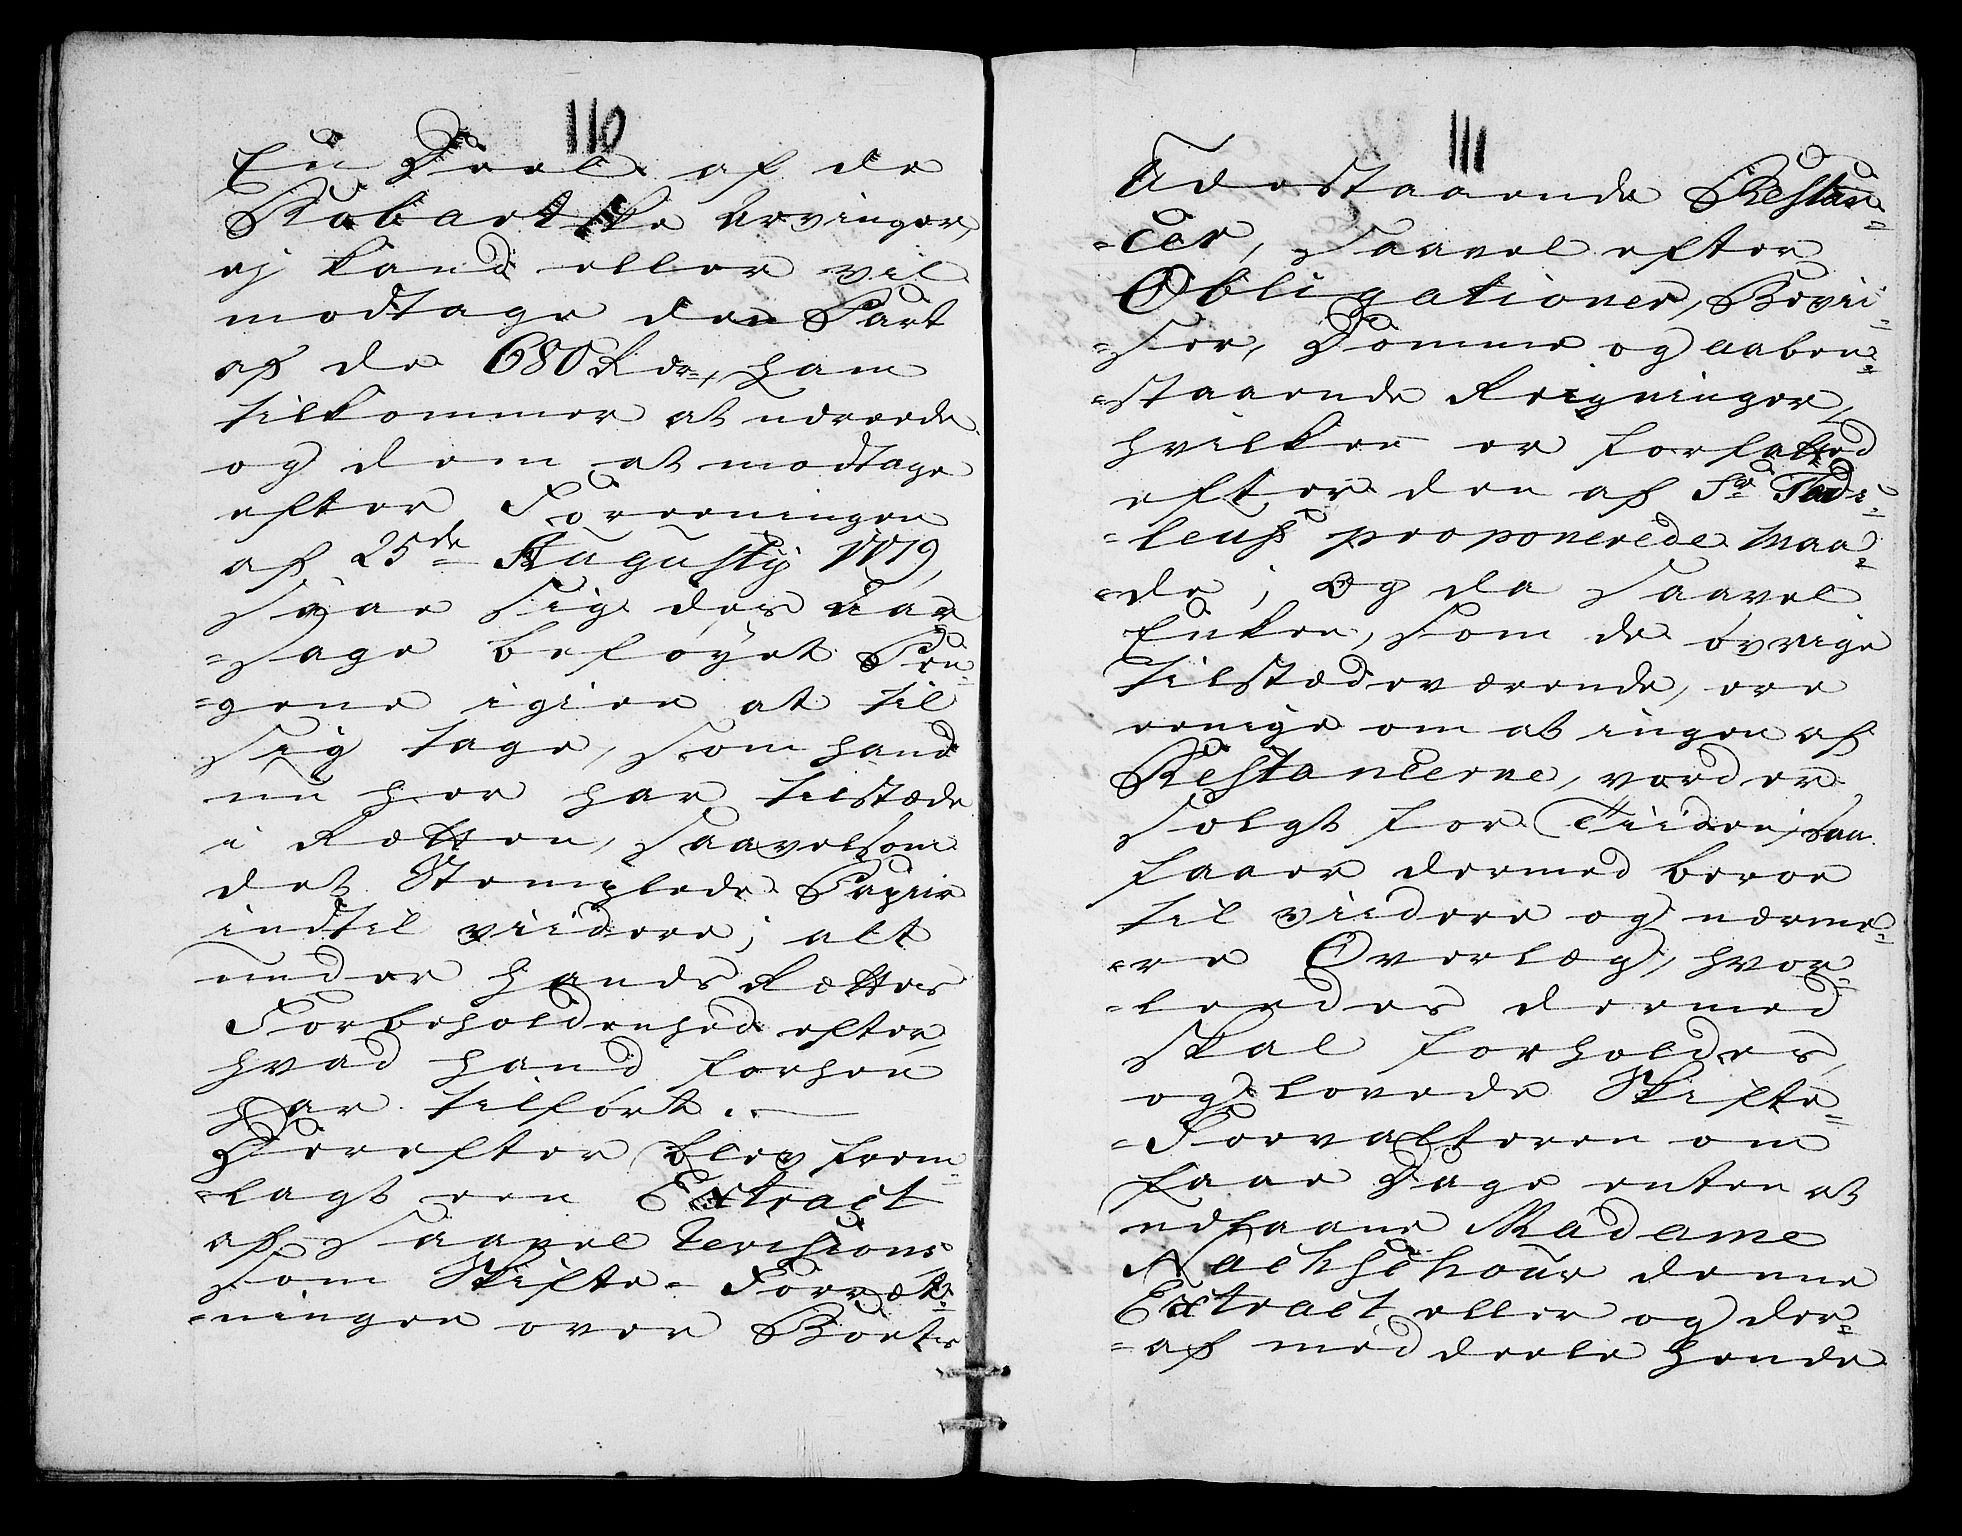 110
En Deel af de
Robartske Arvinger,
ej kand eller vil
modtage den Part
af de 680 Rdr, ham
tilkommer at udreede
og dem at modtage
efter Foreeningen
af 25de Augustij 1779,
Saae Sig des aar-
=sage beføyet Pen-
=gene igien at til
Sig tage, Som hand
nu her har tilstæde
i Rætten, Saavelsom
det Stemplede Papiir
indtil viidere; alt
under hands Rættes
Forbeholdenhed efter
hvad hand forhen
har tilført. —
Derefter blev frem-
=lagt een Extract
af Saavel Revisions
Som Skifte-Forræt-
=ningen over Boets
111
Udestaaende Restan-
=cer, Saavel efter
Obligationer, Bevii-
=ser, Domme og aaben-
=staaende Reigninger,
hvilken er forfatted
efter den af Sr
proponerede Maa-
=de; og da Saavel
Enken, Som de øvrige
tilstædeværende, ere
eenige om at ingen af
Restancerne, vorder
Solgt for Tiiden, Saa
faaer dermed beroe
til viidere og nærme-
=re Overlæg, hvor-
=leedes dermed
Skal forholdes,
og lovede Skifte-
=Forvalteren om
faae Dage enten at
udlaane Madame
Nachschouw denne
Extract eller og der-
=af meddeele hende